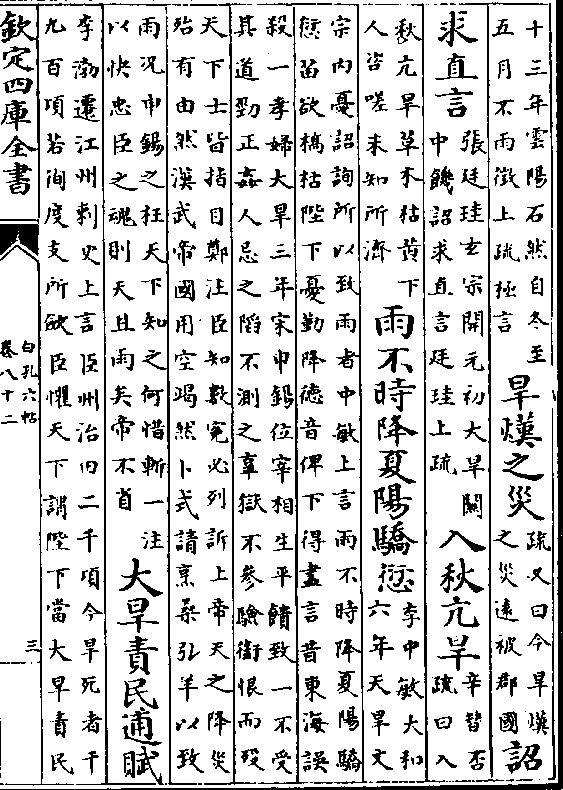 十三年雲陽石然自冬至
五月不雨徵上疏極言
旱熯之災
疏又曰今旱熯
之災遠被郡國
詔
求直言
張廷珪玄宗開元初大旱關
中饑詔求直言廷珪上疏
入秋亢旱
辛替否
疏曰入
秋亢旱草木枯黃下
人咨嗟未知所濟
雨不時降夏陽驕愆
李中敏大和
六年天旱文
宗内憂詔詢所以致雨者中敏上言雨不時降夏陽驕
愆苗欲槁枯陛下憂勤降德音俾下得盡言昔東海誤
殺一孝婦大旱三年宋申錫位宰相生平饋致一不受
其道勁正姦人忌之陷不測之辜獄不參驗銜恨而歿
天下士皆指目鄭注臣知數冤必列訴上帝天之降災
殆有由然漢武帝國用空竭然卜式請烹桑弘羊以致
雨况申錫之枉天下知之何惜斬一注
以快忠臣之魂則天且雨矣帝不省
大旱責民逋賦
李渤遷江州刺史上言臣州治田二千項今旱死者千
九百項若徇度支所斂臣懼天下謂陛下當大旱責民
欽定四庫全書
白孔六帖
卷八十二
三